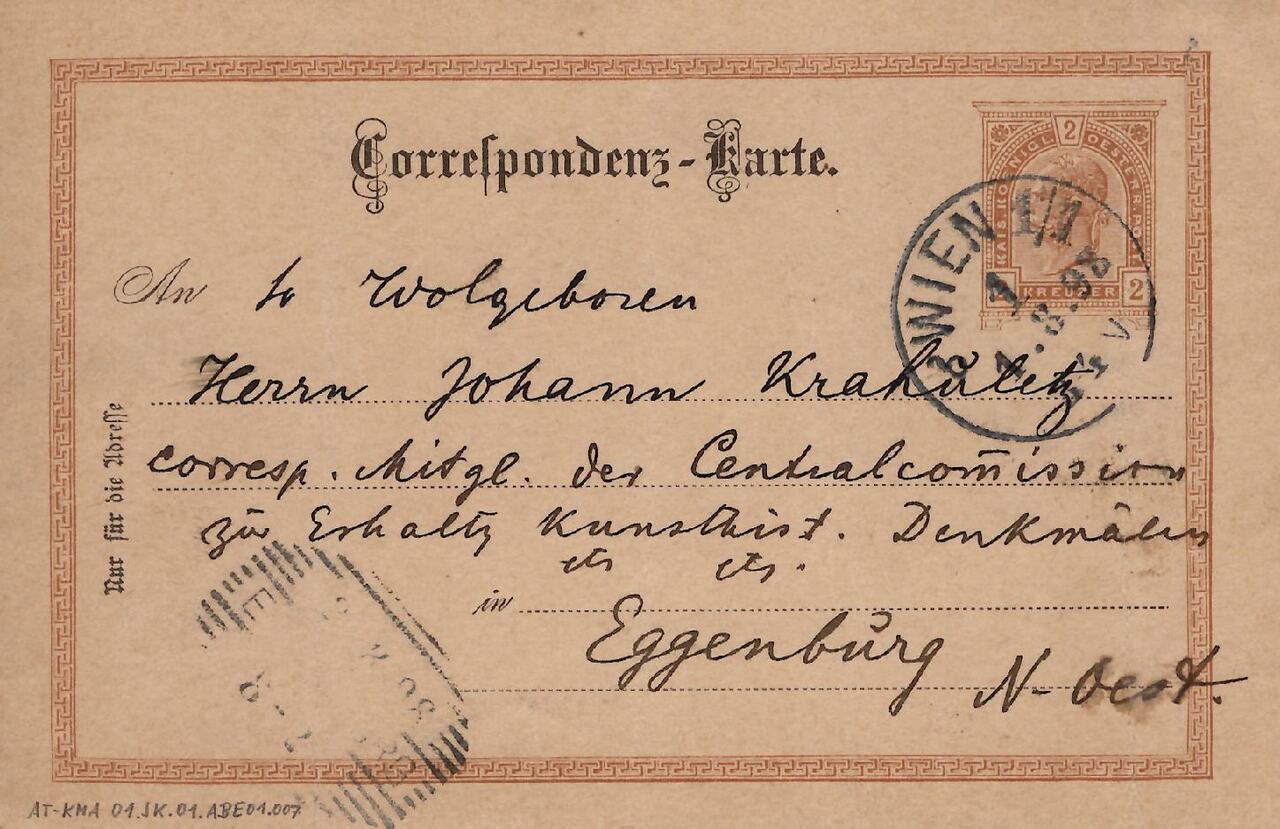 Correspondenz-Karte.
2
KAIS. KOENIGL. OESTERR. POST
KREUZER 2
WIEN 1/1
1
1.8.98
V
An Wolgeboren
Herrn Johann Krahuletz
corresp. Mitgl. der Centralcom̄ission
zu Erhaltg kunsthist. Denkmäler
etc etc.
in
Eggenburg
N-Oest.
Nur für die Adresse
AT-KMA 01.JK.01.ABE01.007